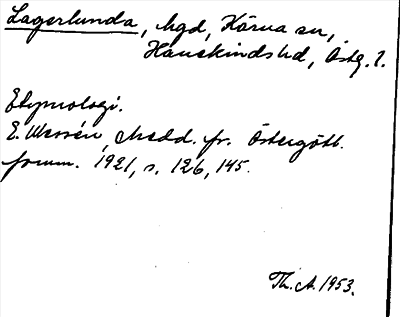 Lagerlunda, hgd, Kärna sn,
Hanekinds hd, Östg. l.
Etymologi.
E. Wessén, Medd. fr. Östergötl.
fornm. 1921, s. 126, 145.
Th. A. 1953.